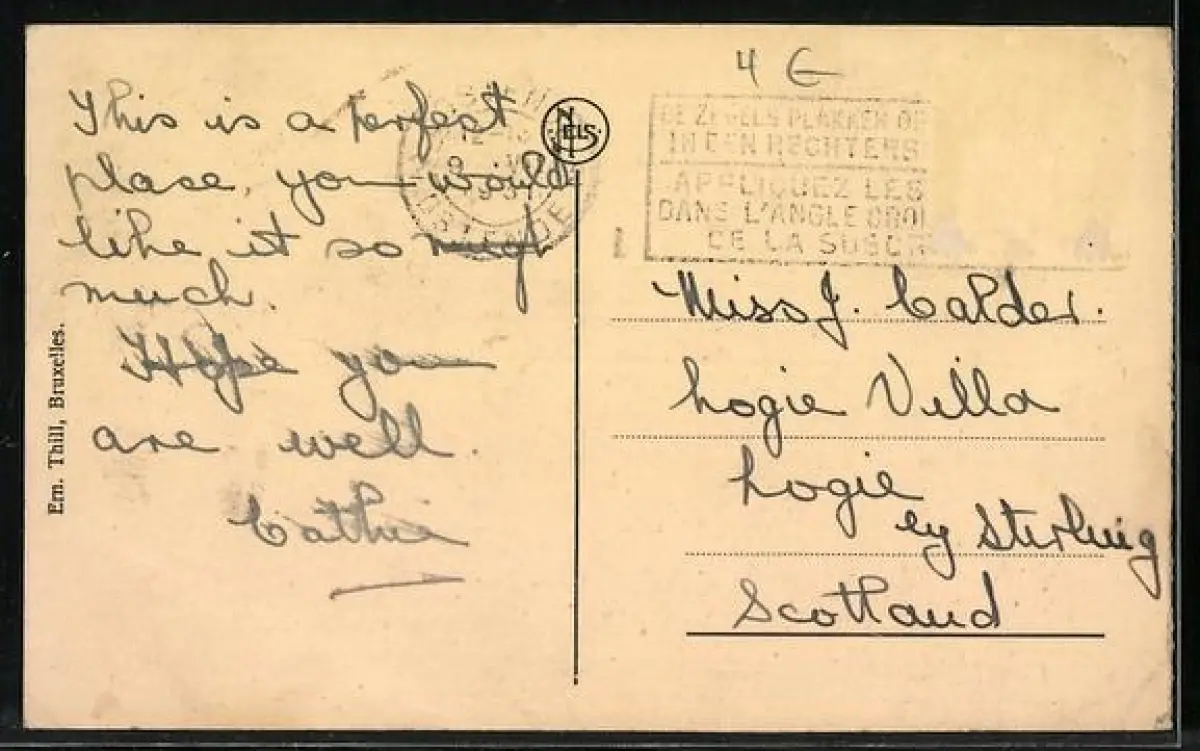 This is a perfect
place, you would
like it so
much.
Hope you
are well.
Cathie
Ern. Thill, Bruxelles.
NELS
OOSTENDE
4 €
DE ZEGELS PLAKKEN OP
IN DEN RECHTERS
APPLIQUEZ LES
DANS L'ANGLE DROI
DE LA SUSCR
Miss J. Calder.
Logie Villa
Logie
by Stirling
Scotland